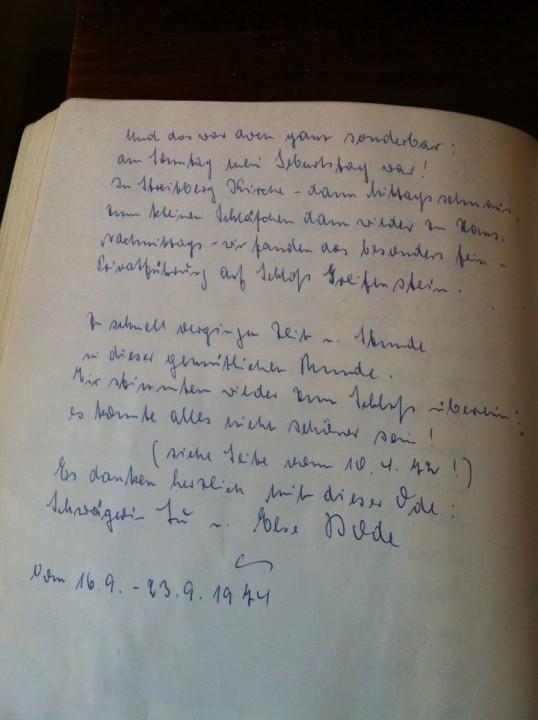 Und das war aven ganz sonderbar:
am Sonntag mein Geburtstag war!
In Streitberg Kirche - dann Mittagsschmaus,
zum kleinen Schläfchen dann wieder zu Haus.
Nachmittags - wir fanden das besonders fein -
Privatführung auf Schloß Greifenstein.
Zu schnell vergingen Zeit u. Stunde
in dieser gemütlichen Runde.
Wir stimmten wieder zum Schluß überein:
es konnte alles nicht schöner sein!
(siehe Seite vom 10. 4. 72!)
Es danken herzlich mit dieser Ode:
Schwägerin Lu u. Else Bode
Vom 16.9. - 23.9. 1974